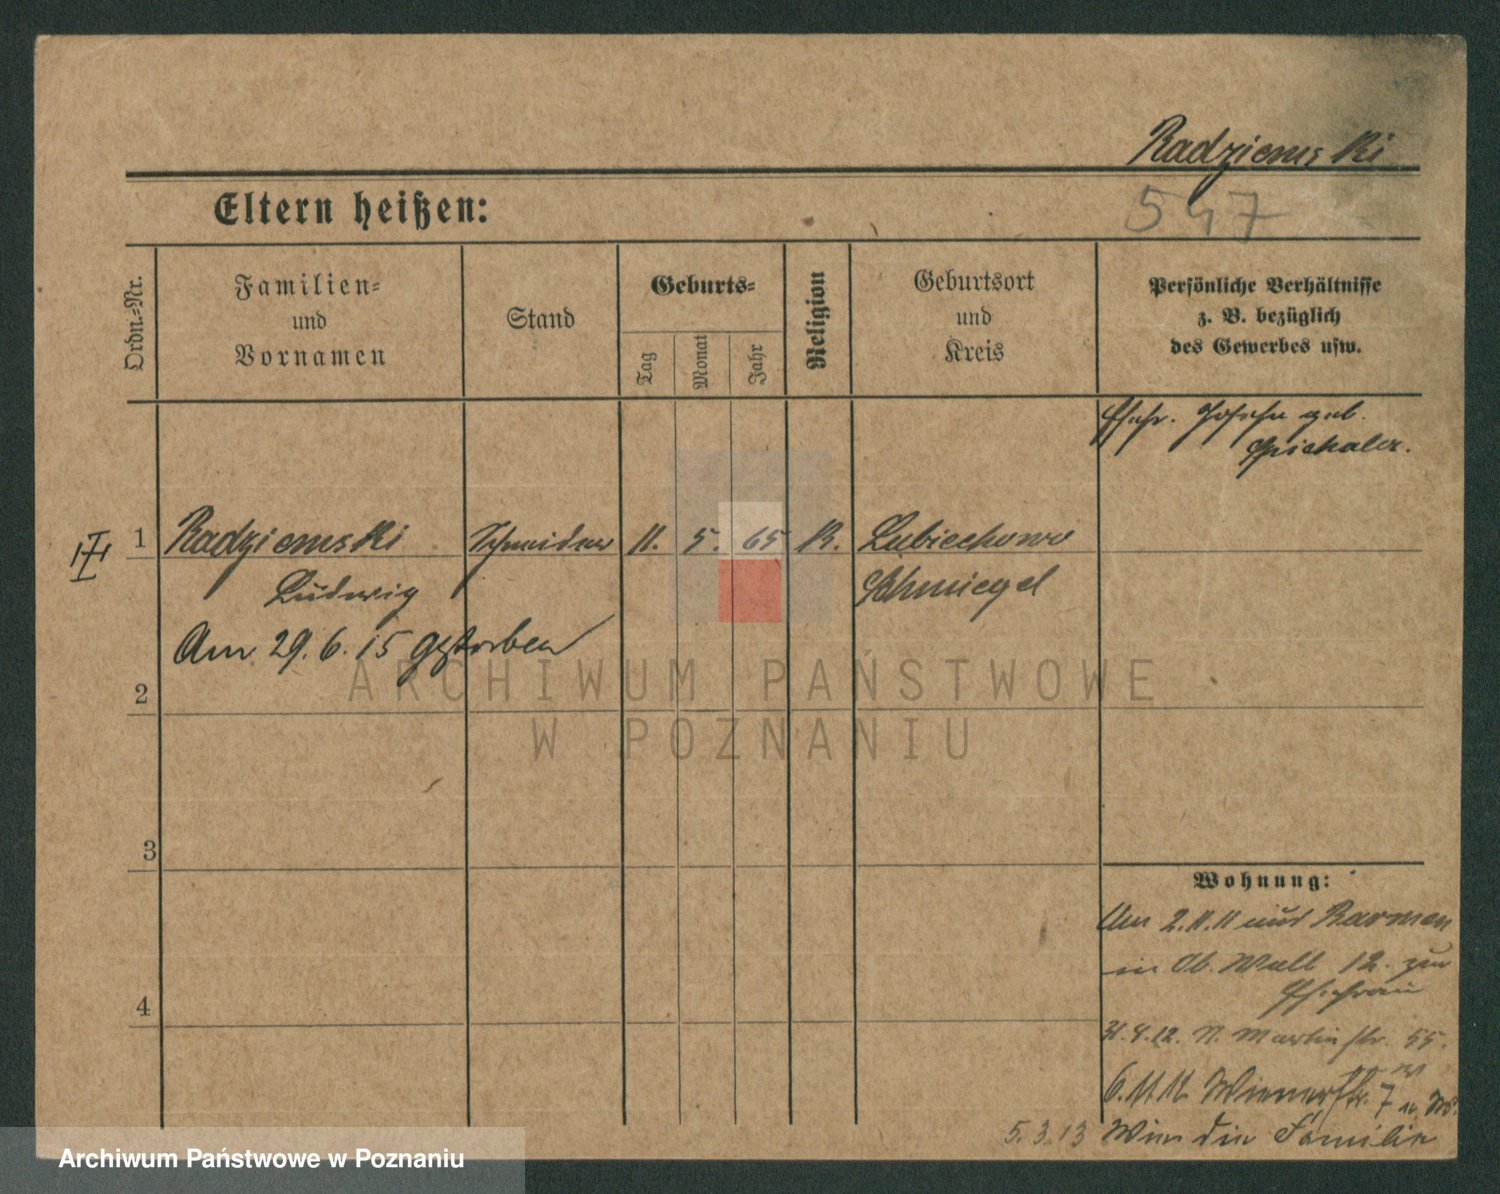 Radziemski
547
Eltern heißen:
Ordn.-Nr.
Familien-
und
Vornamen
Stand
Geburts-
Tag
Monat
Jahr
Religion
Geburtsort
und
Kreis
Persönliche Verhältnisse
z. B. bezüglich
des Gewerbes usw.
Ehefr. geb.
1 Radziemski Schneider 11. 5. 65 K. Lubiechowo
Ludwig Schmiegel
Am 29.6.15 gestorben
2
3
4
Wohnung:
Am 2.11.11 aus Barmen
in Ob. Wall 12. zur
Ehefrau
31.8.12. N. Martinstr. 55.
6.11.12 Wienerstr. 7
5.3.13 Wien die Familie
ARCHIWUM PAŃSTWOWE
W POZNANIU
Archiwum Państwowe w Poznaniu